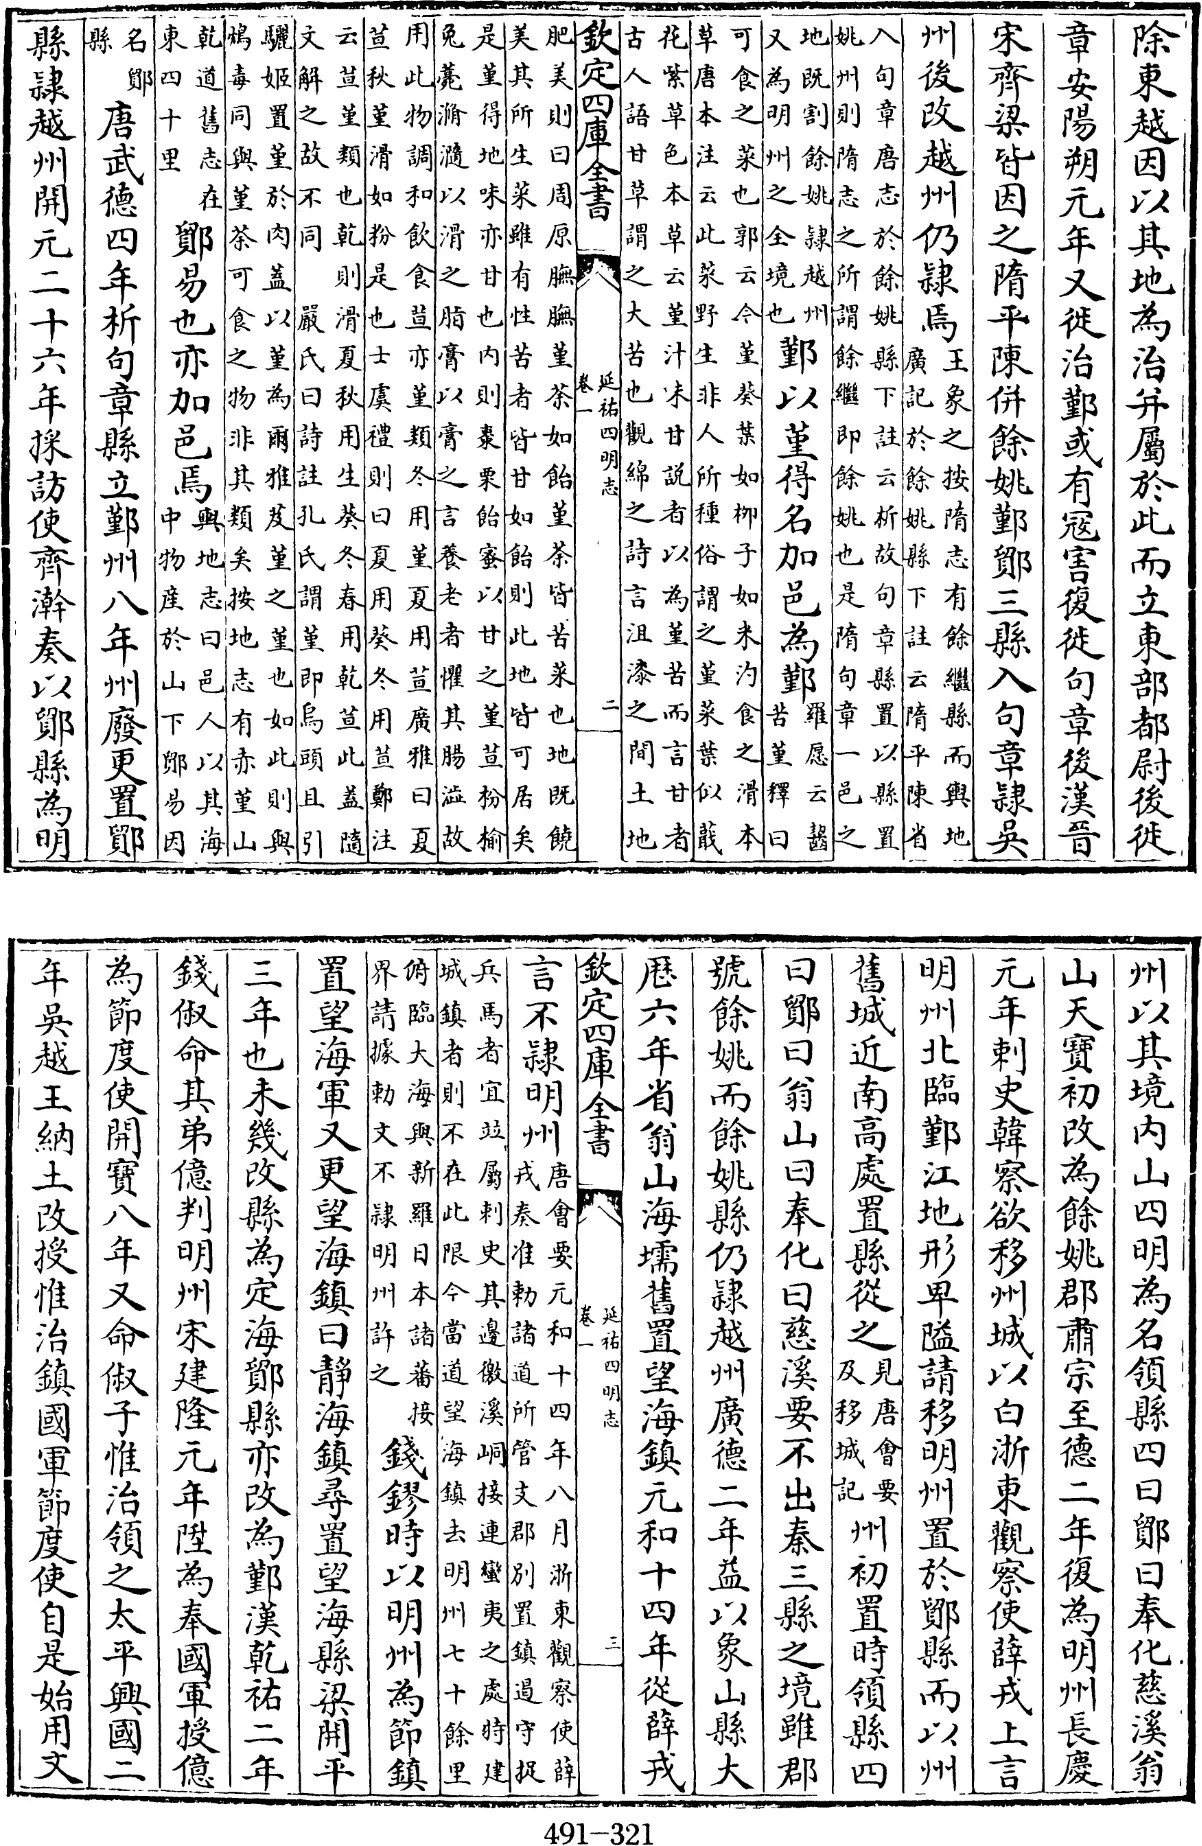 除東越因以其地為治并屬於此而立東部都尉後徙
章安陽朔元年又徙治鄞或有寇害復徙句章後漢晉
宋齊梁皆因之隋平陳併餘姚鄞鄮三縣入句章隸吳
州後改越州仍隸焉王象之按隋志有餘繼縣而輿地
廣記於餘姚縣下註云隋平陳省
入句章唐志於餘姚縣下註云析故句章縣置以縣置
姚州則隋志之所謂餘繼即餘姚也是隋句章一邑之
地既割餘姚隸越州
又為明州之全境也鄞以堇得名加邑為鄞羅愿云齧
苦堇釋曰
可食之菜也郭云今堇葵葉如柳子如米汋食之滑本
草唐本注云此菜野生非人所種俗謂之堇菜葉似蕺
花紫草色本草云堇汁味甘説者以為堇苦而言甘者
古人語甘草謂之大苦也觀綿之詩言沮漆之間土地
欽定四庫全書
延祐四明志
卷一
二
肥美則曰周原膴膴堇荼如飴堇荼皆苦菜也地既饒
美其所生菜雖有性苦者皆甘如飴則此地皆可居矣
是堇得地味亦甘也内則棗栗飴蜜以甘之堇荁枌榆
免薧滫瀡以滑之脂膏以膏之言養老者懼其腸澁故
用此物調和飲食荁亦堇類冬用堇夏用荁廣雅曰夏
荁秋堇滑如粉是也士虞禮則曰夏用葵冬用荁鄭注
云荁堇類也乾則滑夏秋用生葵冬春用乾荁此蓋隨
文解之故不同 嚴氏曰詩註孔氏謂堇即烏頭且引
驪姬置堇於肉蓋以堇為爾雅芨堇之堇也如此則與
鴆毒同與堇荼可食之物非其類矣按地志有赤堇山
乾道舊志在
東四十里鄮易也亦加邑焉輿地志曰邑人以其海
中物産於山下鄮易因
名鄮
縣唐武德四年析句章縣立鄞州八年州廢更置鄮
縣隸越州開元二十六年採訪使齊澣奏以鄮縣為明
州以其境内山四明為名領縣四曰鄮曰奉化慈溪翁
山天寶初改為餘姚郡肅宗至德二年復為明州長慶
元年刺史韓察欲移州城以白浙東觀察使薛戎上言
明州北臨鄞江地形卑隘請移明州置於鄮縣而以州
舊城近南高處置縣從之見唐會要
及移城記州初置時領縣四
曰鄮曰翁山曰奉化曰慈溪要不出秦三縣之境雖郡
號餘姚而餘姚縣仍隸越州廣德二年益以象山縣大
厯六年省翁山海壖舊置望海鎮元和十四年從薛戎
欽定四庫全書
延祐四明志
卷一
三
言不隸明州唐會要元和十四年八月浙東觀察使薛
戎奏准勅諸道所管支郡別置鎮遏守捉
兵馬者宜並屬刺史其邊徼溪峒接連蠻夷之處特建
城鎮者則不在此限今當道望海鎮去明州七十餘里
俯臨大海與新羅日本諸蕃接
界請據勅文不隸明州許之錢鏐時以明州為節鎮
置望海軍又更望海鎮曰靜海鎮尋置望海縣梁開平
三年也未幾改縣為定海鄮縣亦改為鄞漢乾祐二年
錢俶命其弟億判明州宋建隆元年陞為奉國軍授億
為節度使開寶八年又命俶子惟治領之太平興國二
年吳越王納土改授惟治鎮國軍節度使自是始用文
491-321